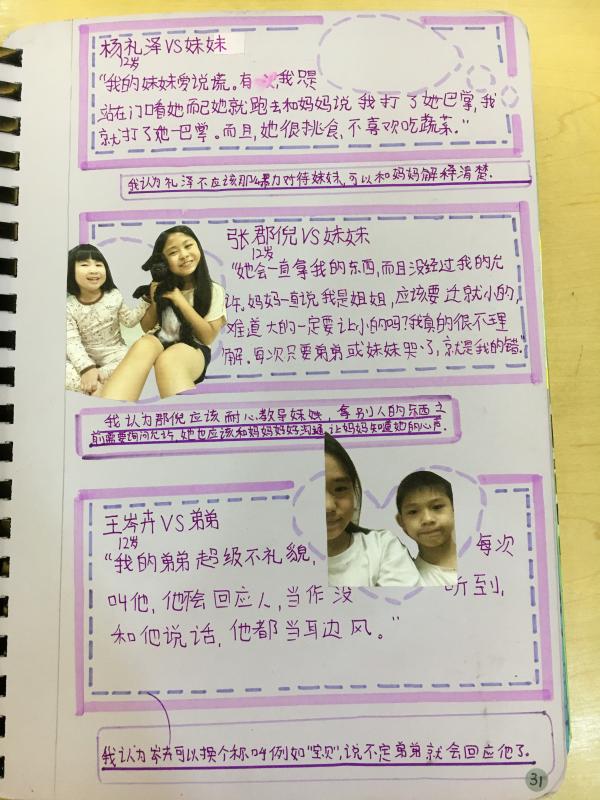 杨礼泽VS妹妹
12岁
“我的妹妹常说谎。有一次，我只是
站在门口看她而已她就跑去和妈妈说 我打了她巴掌，我
就打了她一巴掌。而且，她很挑食，不喜欢吃蔬菜。”
我认为礼泽不应该那么暴力对待妹妹，可以和妈妈解释清楚.
张郡倪VS妹妹
12岁
“她会一直拿我的东西，而且没经过我的允
许。妈妈一直说我是姐姐，应该要迁就小的，
难道大的一定要让小的吗？我真的很不理
解。每次只要弟弟或妹妹哭了，就是我的错。”
我认为郡倪应该耐心教导妹妹，拿别人的东西之
前需要询问允许。她也应该和妈妈好好沟通，让妈妈知道她的心声.
王岑卉VS弟弟
12岁
“我的弟弟超级不礼貌，每次
叫他，他不会回应人，当作没听到，
和他说话，他都当耳边风。”
我认为岑卉可以换个称呼例如“宝贝”，说不定弟弟就会回应他了.
31